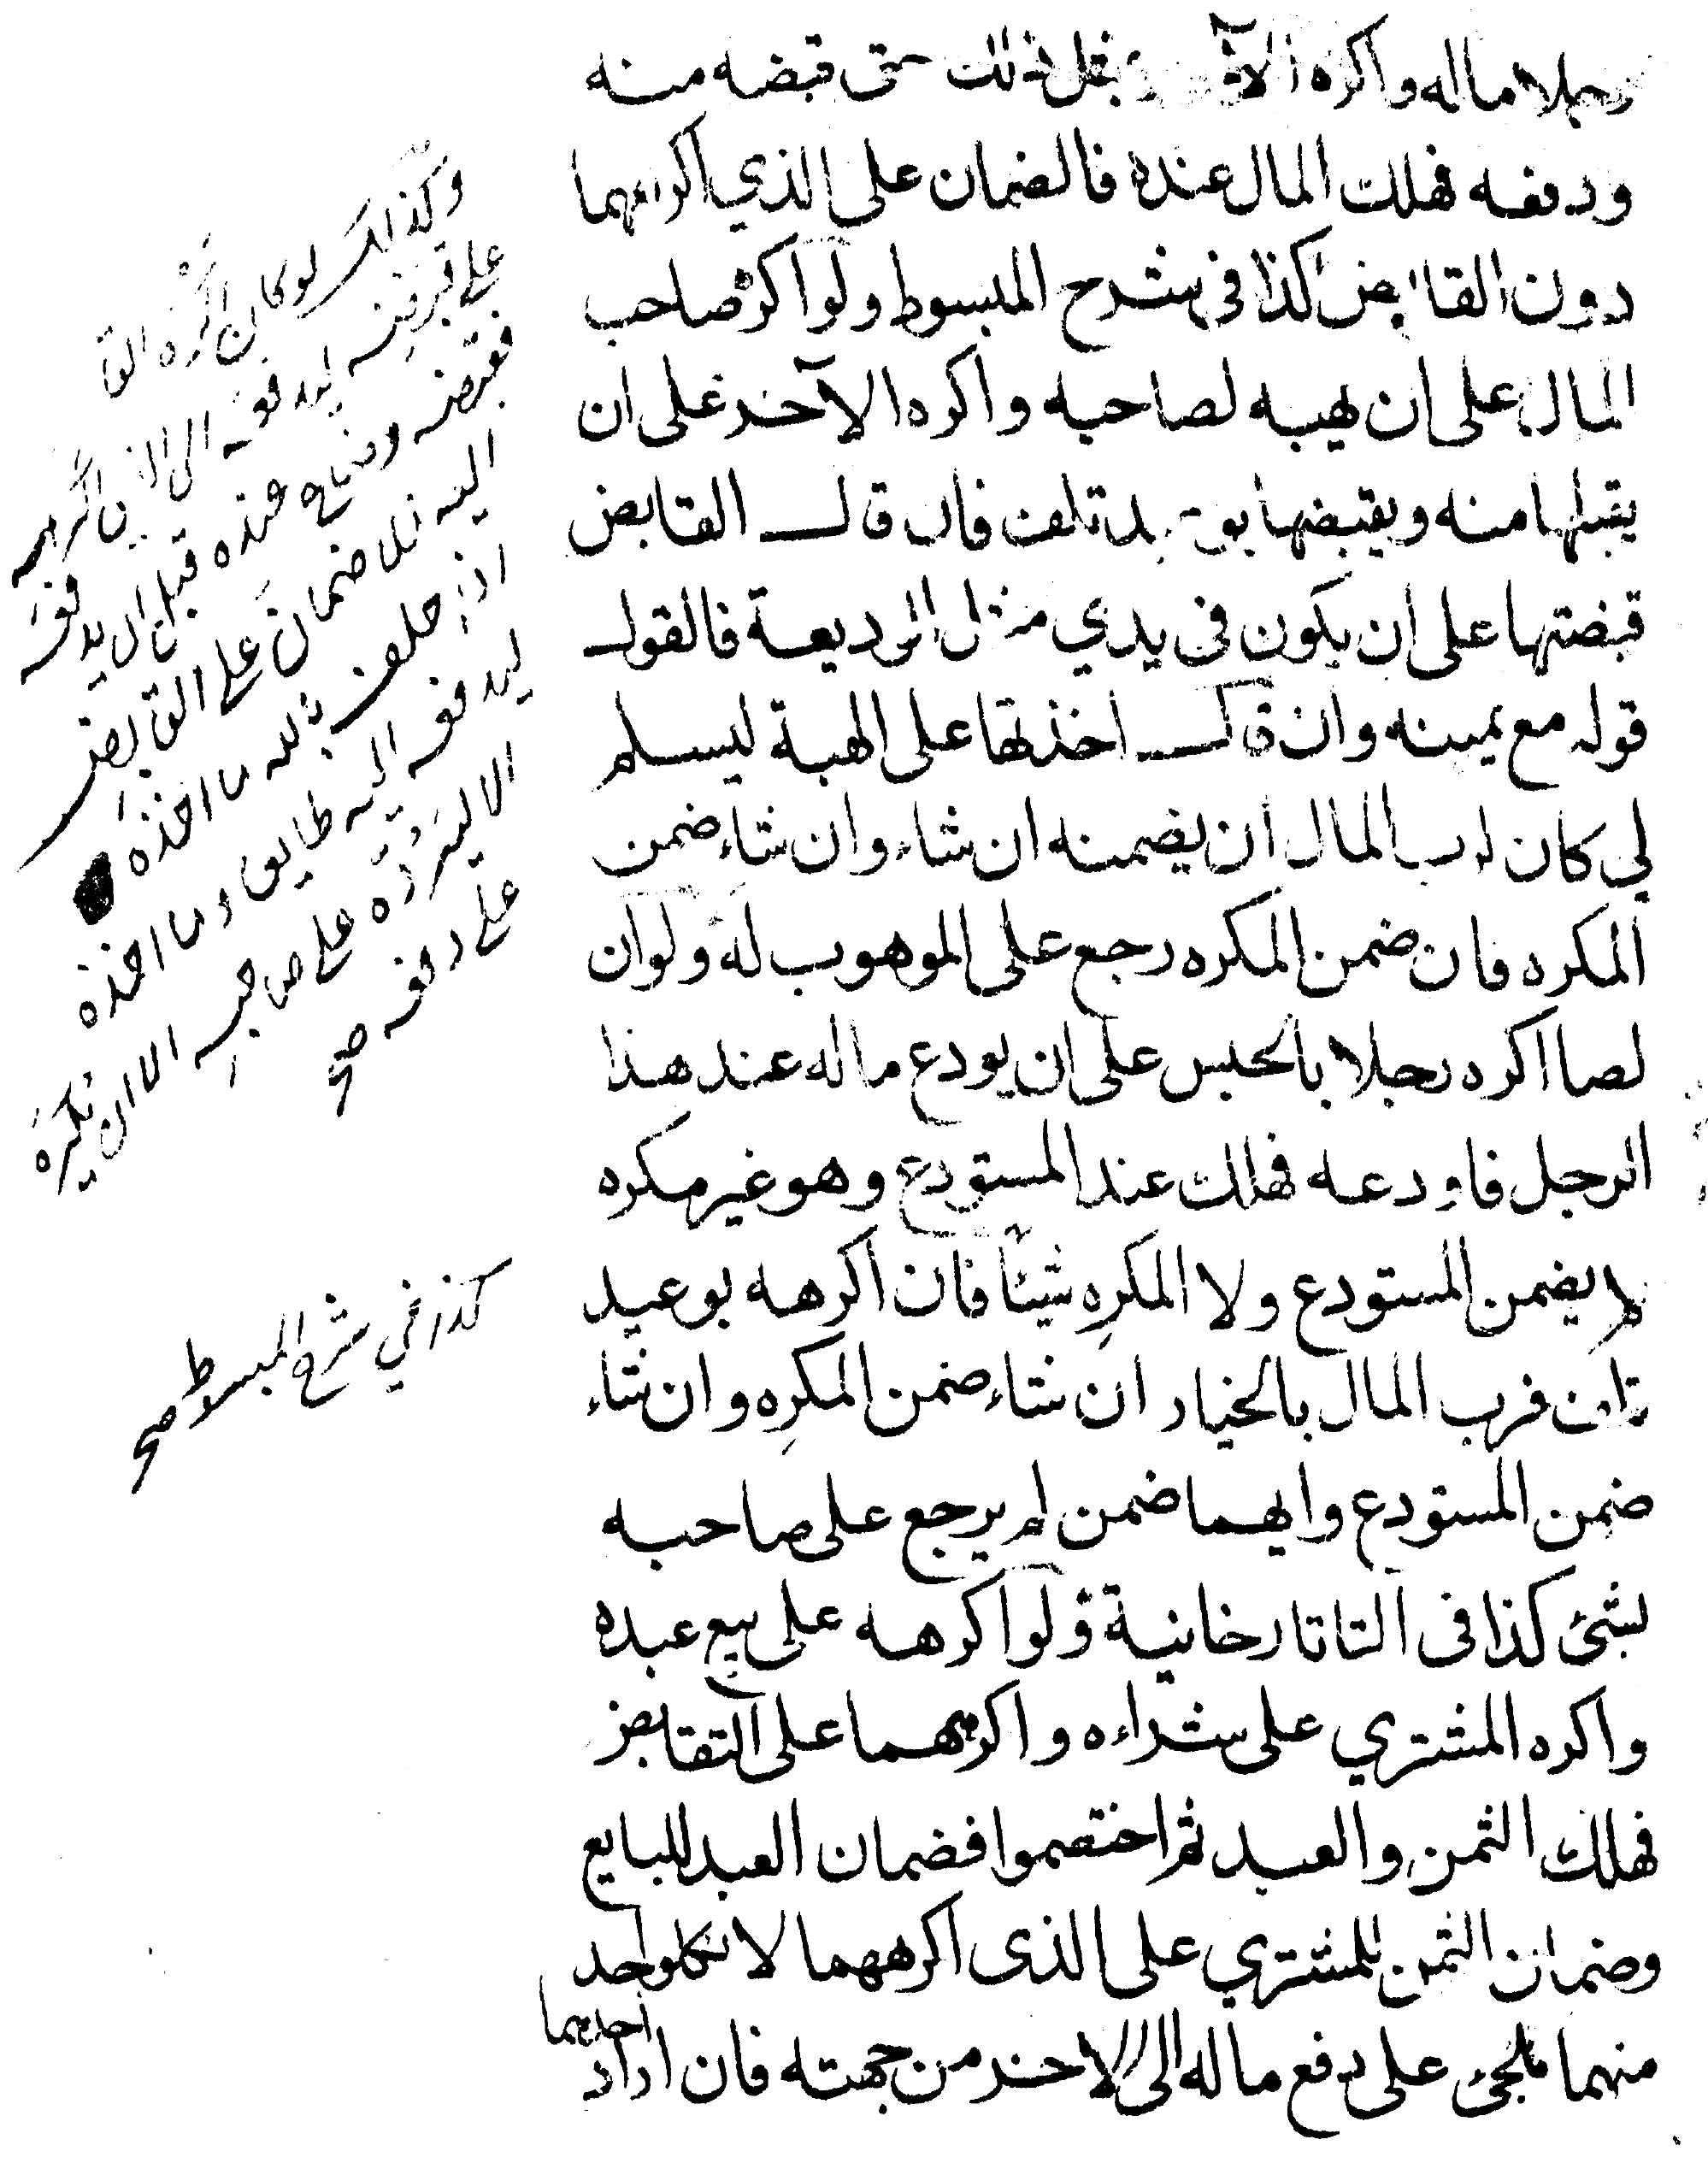 رجلا ماله واكره الآخر بفعل ذلك حتى قبضه منه
ودفعه فهلك المال عنده فالضمان على الذي اكرههما
دون القابض كذا في شرح المبسوط ولو اكره صاحب
المال على ان يهبه لصاحبه واكره الآخر على ان
يقبلها منه ويقبضها بوعيد تلف فان قال القابض
قبضتها على ان يكون في يدي مثل الوديعة فالقول
قوله مع يمينه وان قال اخذتها على الهبة ليسلم
لي كان لرب المال ان يضمنه ان شاء وان شاء ضمن
المكره فان ضمن المكره رجع على الموهوب له ولو ان
لصا اكره رجلا بالحبس على ان يودع ماله عند هذا
الرجل فاودعه فهلك عند المستودع وهو غير مكره
لم يضمن المستودع ولا المكرِه شيئًا فان اكرهه بوعيد
تلف فرب المال بالخيار ان شاء ضمن المكرِه وان شاء
ضمن المستودع وايهما ضمن لم يرجع على صاحبه
بشئ كذا فى التاتارخانية ولو اكرهه على بيع عبده
واكره المشتري على شراءه واكرههما على التقابض
فهلك الثمن والعبد ثم اختصموا فضمان العبد للبايع
وضمان الثمن للمشتري على الذى اكرههما لان كلواحد
منهما ملجئ على دفع ماله الى الاخر من جهته فان اراد
احديهما
وكذلك لو كان اكره القا
على قبضه ليدفعه الى الذي اكرهه
فقبضه وضاع عنده قبل ان يدفعه
اليه فلا ضمان على القابض
اذا حلف بالله ما اخذه
ليدفعه اليه طايعا وما اخذه
الا ليرده على صاحبه الا ان يكره
على دفعه صح
كذا في شرح المبسوط صح